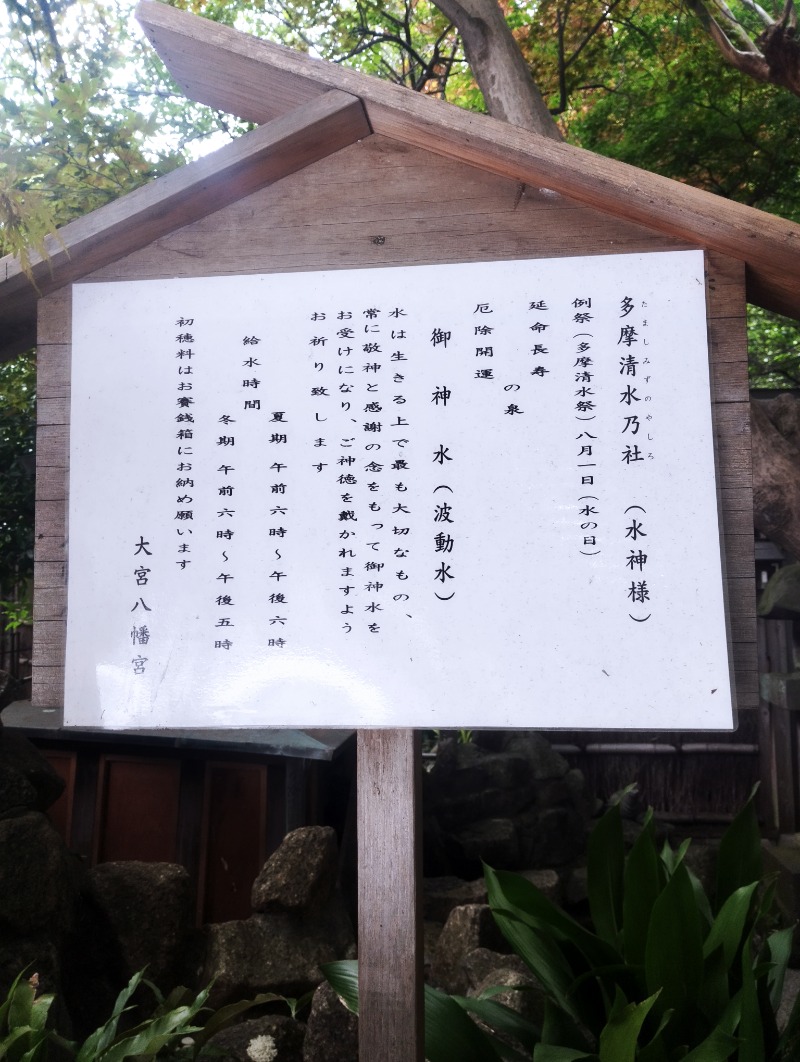 多摩清水乃社 (水神様)
たましみずのやしろ
例祭(多摩清水祭)八月一日(水の日)
延命長寿
の泉
厄除開運
御神水(波動水)
水は生きる上で最も大切なもの、
常に敬神と感謝の念をもって御神水を
お受けになり、ご神徳を戴かれますよう
お祈り致します
給水時間
夏期 午前六時～午後六時
冬期 午前六時～午後五時
初穂料はお賽銭箱にお納め願います
大宮八幡宮